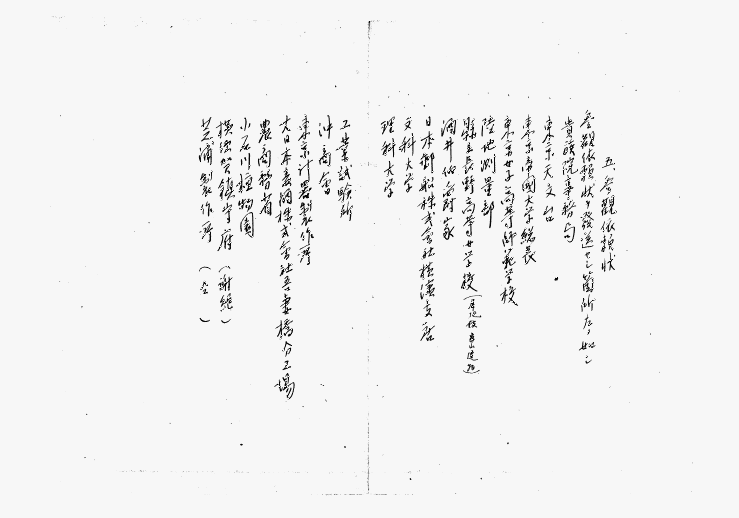 五、參觀依頼狀
參觀依頼狀ヲ發送セシ箇所左ノ如シ
貴議院事務局
東京天文台
東京帝國大学總長
東京女子高等師範学校
陸地測量部
縣立長野高等女学校
酒井伯爵家
日本郵船株式會社横濱支店
文科大学
理科大学
工業試驗所
沖商會
東京計器製作所
大日本麦酒株式會社吾妻橋分工場
農商務省
小石川植物園
横須賀鎮守府（謝絶）
芝浦製作所（仝　）